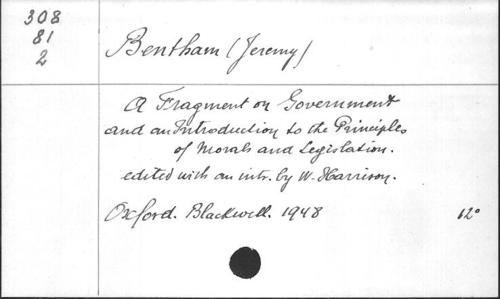 308
81
2
Bentham (Jeremy)
A Fragment on Government
and an Introduction to the Principles
of Morals and Legislation.
edited with an intr. by W. Harrison.
Oxford. Blackwell. 1948
12°